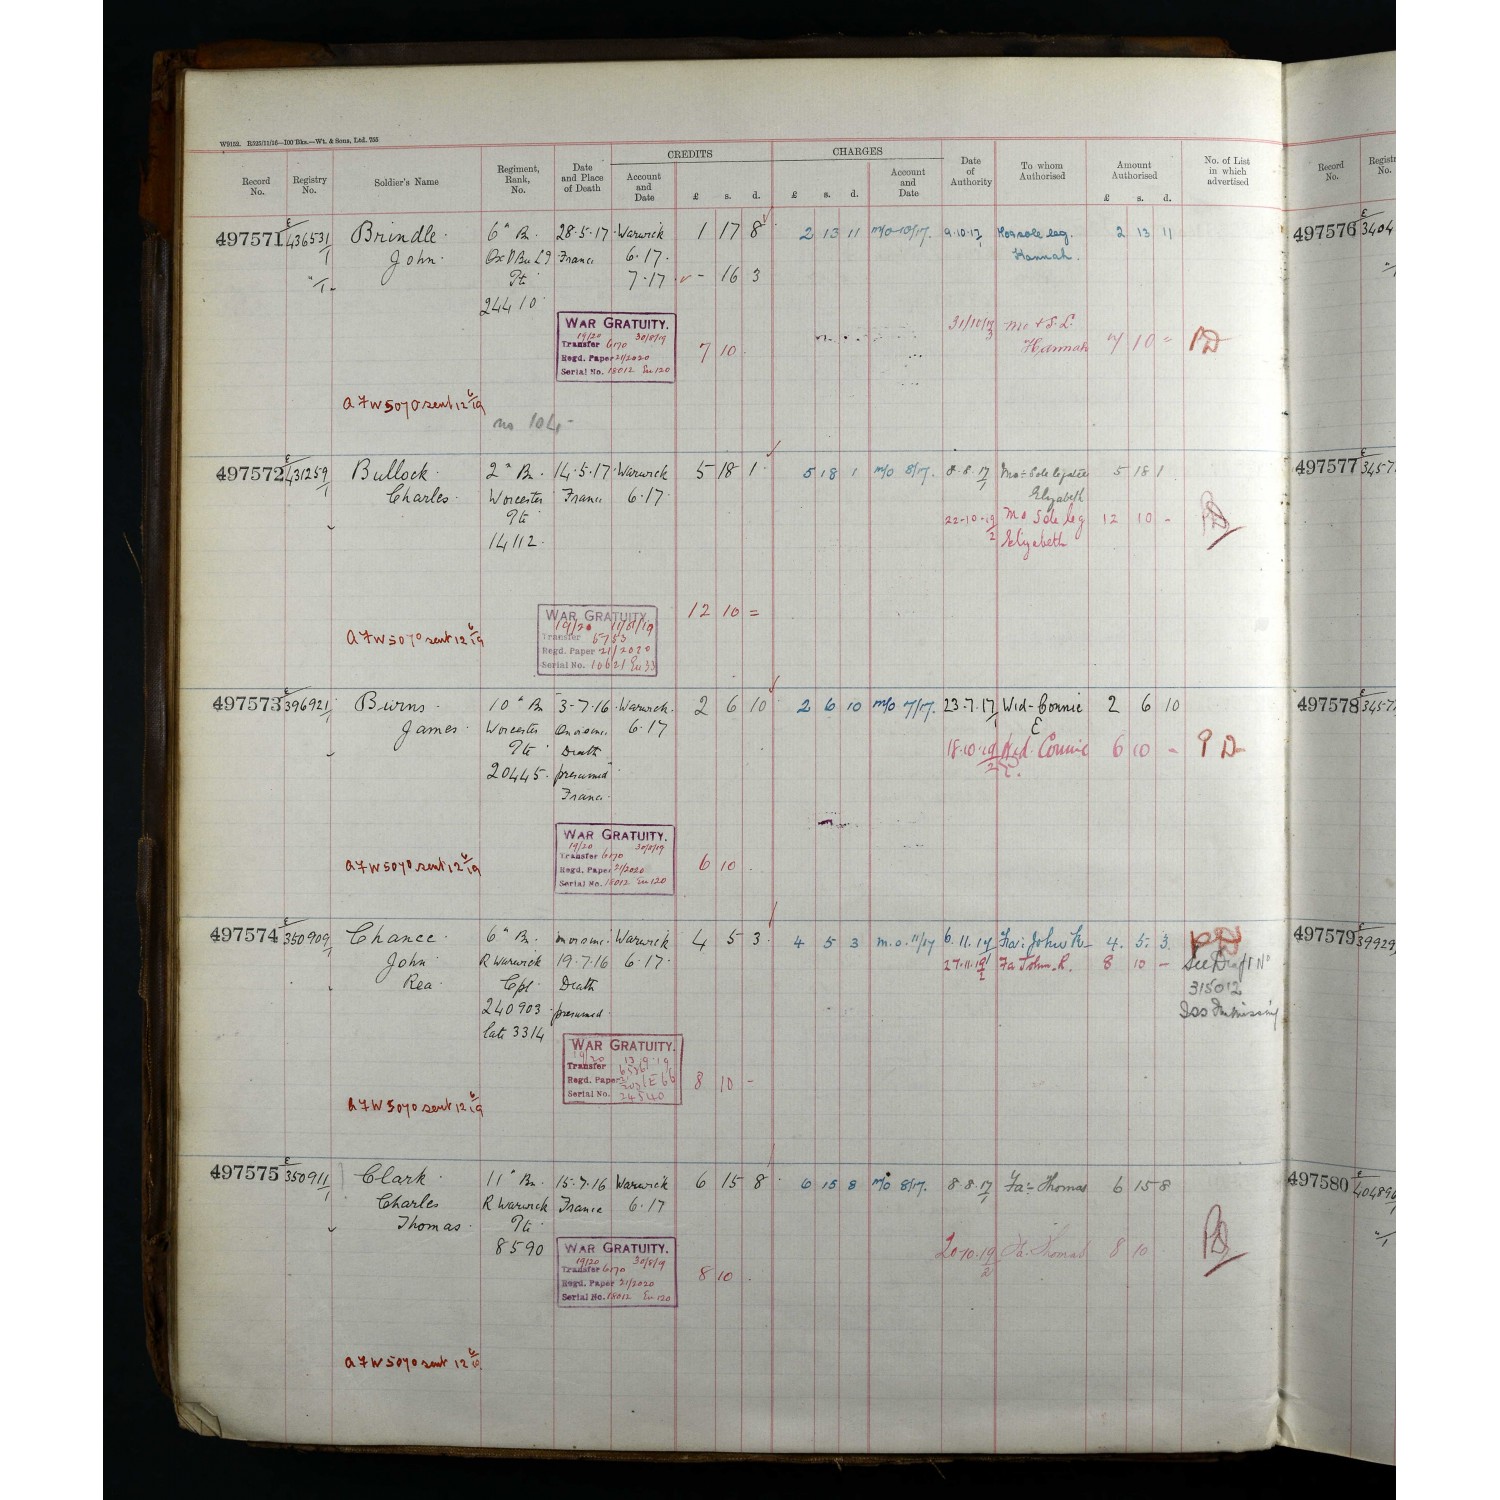 W9152. R525/11/16—100 Bks.—Wt. & Sons, Ltd. 755
CREDITS CHARGES
Record No. Registry No. Soldier's Name Regiment, Rank, No. Date and Place of Death Account and Date £ s. d. £ s. d. Account and Date Date of Authority To whom Authorised Amount Authorised £ s. d. No. of List in which advertised Record No.
497571 E/436531/1 Brindle 6th Bn. 28.5.17 Warwick 1 17 8 2 13 11 m/o 10/17. 9.10.17 2 13 11 497576
John. France 6.17. Hannah.
Pte 7.17 - 16 3
24410
WAR GRATUITY.
19/20 30/8/19
Transfer 6170
Regd. Paper 21/2020
Serial No. 18012 En 120
7 10
31/10/19 Mo + S.L. 7 10 = PD
Hannah
a F W 5070 sent 12 6/19
no 104
497572 E/431259/1 Bullock. 2nd Bn. 14.5.17 Warwick 5 18 1 5 18 1 m/o 8/17. 8.8.17 Mo = Sole legatee 5 18 1 497577
Charles. Worcester France 6.17. Elizabeth
Pte 22-10-19/2 Mo Sole leg 12 10 - PD
14112. Elizabeth
12 10 =
WAR GRATUITY
19/20 11/9/19
Transfer 5753
Regd. Paper 21/2020
Serial No. 10621 En 33
a F W 5070 sent 12 6/19
497573 E/396921/1 Burns. 10th Bn 3-7.16 Warwick. 2 6 10 2 6 10 m/o 7/17. 23.7.17 Wid - Connie 2 6 10 497578
James. Worcester On or since 6.17 E
Pte Death 18.10.19/2 Wid. Connie 6 10 - P D
20445. presumed E.
France.
WAR GRATUITY.
19/20 30/8/19
Transfer 6170
Regd. Paper 21/2020
Serial No. 18012 En 120
6 10
a F W 5070 sent 12 6/19
497574 E/350909/1 Chance. 6th Bn. Warwick 4 5 3 4 5 3 m.o. 11/17 6.11.17 Fa: John R 4. 5. 3. PD 497579
John R Warwick 19.7.16 6.17. 27.11.19/2 Fa John. R. 8 10 - See Draft No
Rea. Cpl. Death 315012
240903 presumed
late 3314
WAR GRATUITY.
19/20 13.9.19
Transfer
Regd. Paper
Serial No. 24540
8 10 -
a F W 5070 sent 12 6/19
497575 E/350911/1 Clark. 11th Bn. 15.7.16 Warwick 6 15 8 6 15 8 m/o 8/17. 8.8.17 Fa = Thomas 6 15 8 497580
Charles R Warwick France 6.17
Thomas. Pte
8590
WAR GRATUITY.
19/20 30/8/19
Transfer 6170
Regd. Paper 21/2020
Serial No. 18012 En 120
8 10
20.10.19/2 Fa. Thomas 8 10 PD
a F W 5070 sent 12 6/19